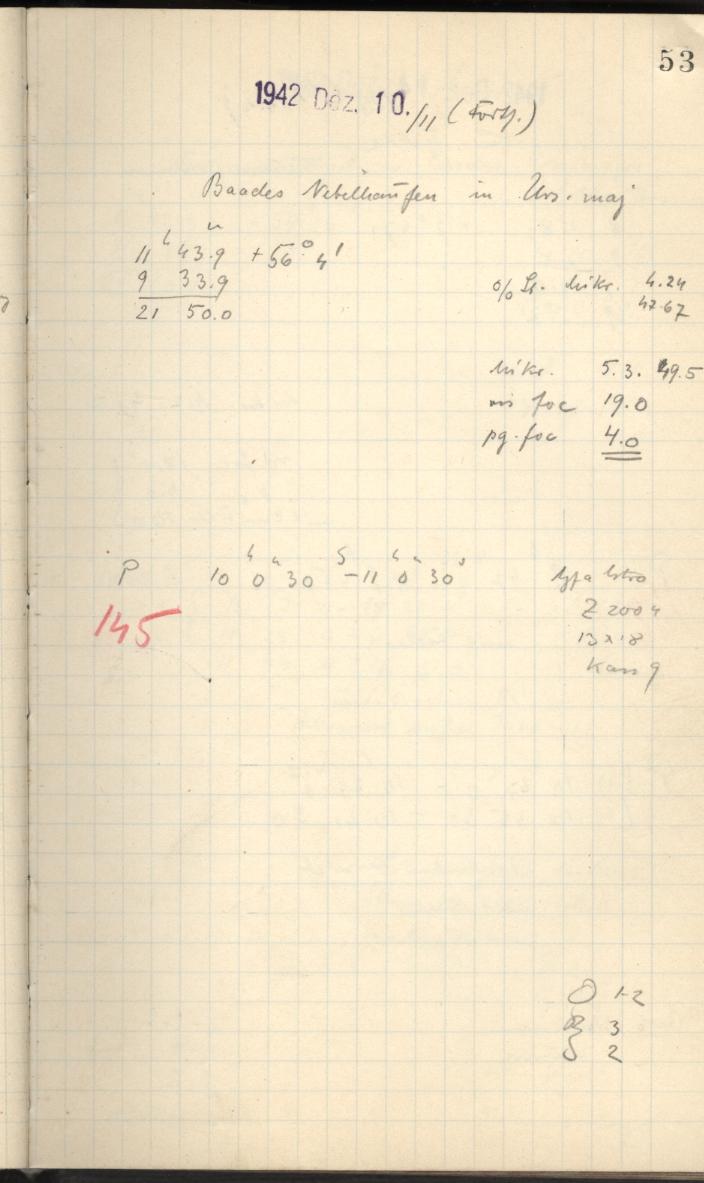 53
1942 Dez. 10./11 (Forts.)
Baades Nebelhaufen in Urs. maj
11h 43.9m +56° 4'
9 33.9
21 50.0
o/o Mikr. 4.24
47.67
Mikr. 5.3. 49.5
vis foc 19.0
pg. foc 4.0
P 10h 0m 30s – 11h 0m 30s
145
Agfa Astro
Z 2004
13 x 18
Kass 9
O 1-2
R 3
S 2